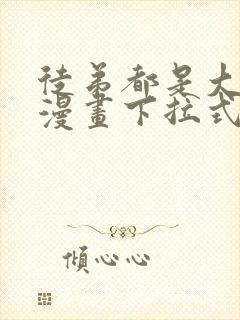 徒弟都是大
漫畫下拉式
傾心心